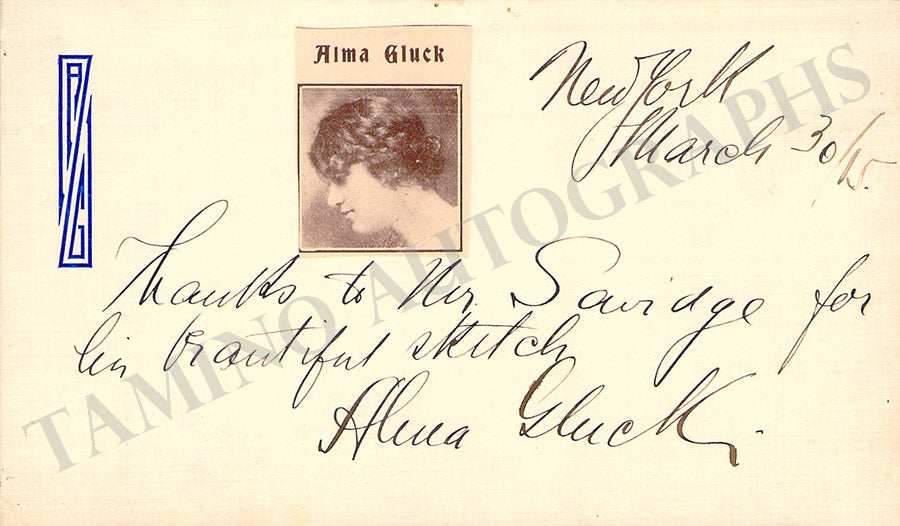 Alma Gluck
New York
March 30/15.
Thanks to Mr. Savidge for
his beautiful sketch
Alma Gluck.
TAMINO AUTOGRAPHS